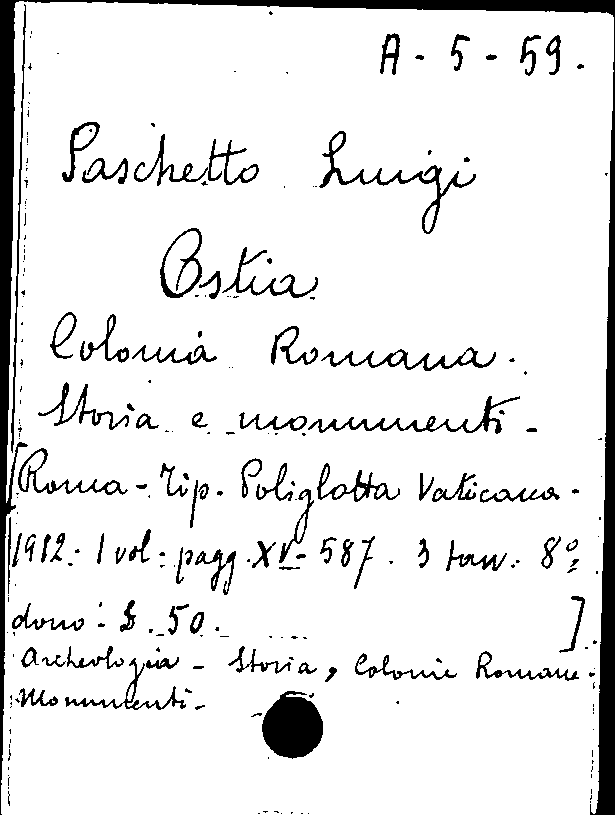 A - 5 - 59.
Paschetto Luigi
Ostia
Colonia Romana.
Storia e monumenti -
[Roma - Tip. Poliglotta Vaticana.
1912. 1 vol. pagg. XV - 587. 3 tav. 8º
dono - £. 50. ]
Archeologia - Storia, Colonie Romane.
Monumenti -